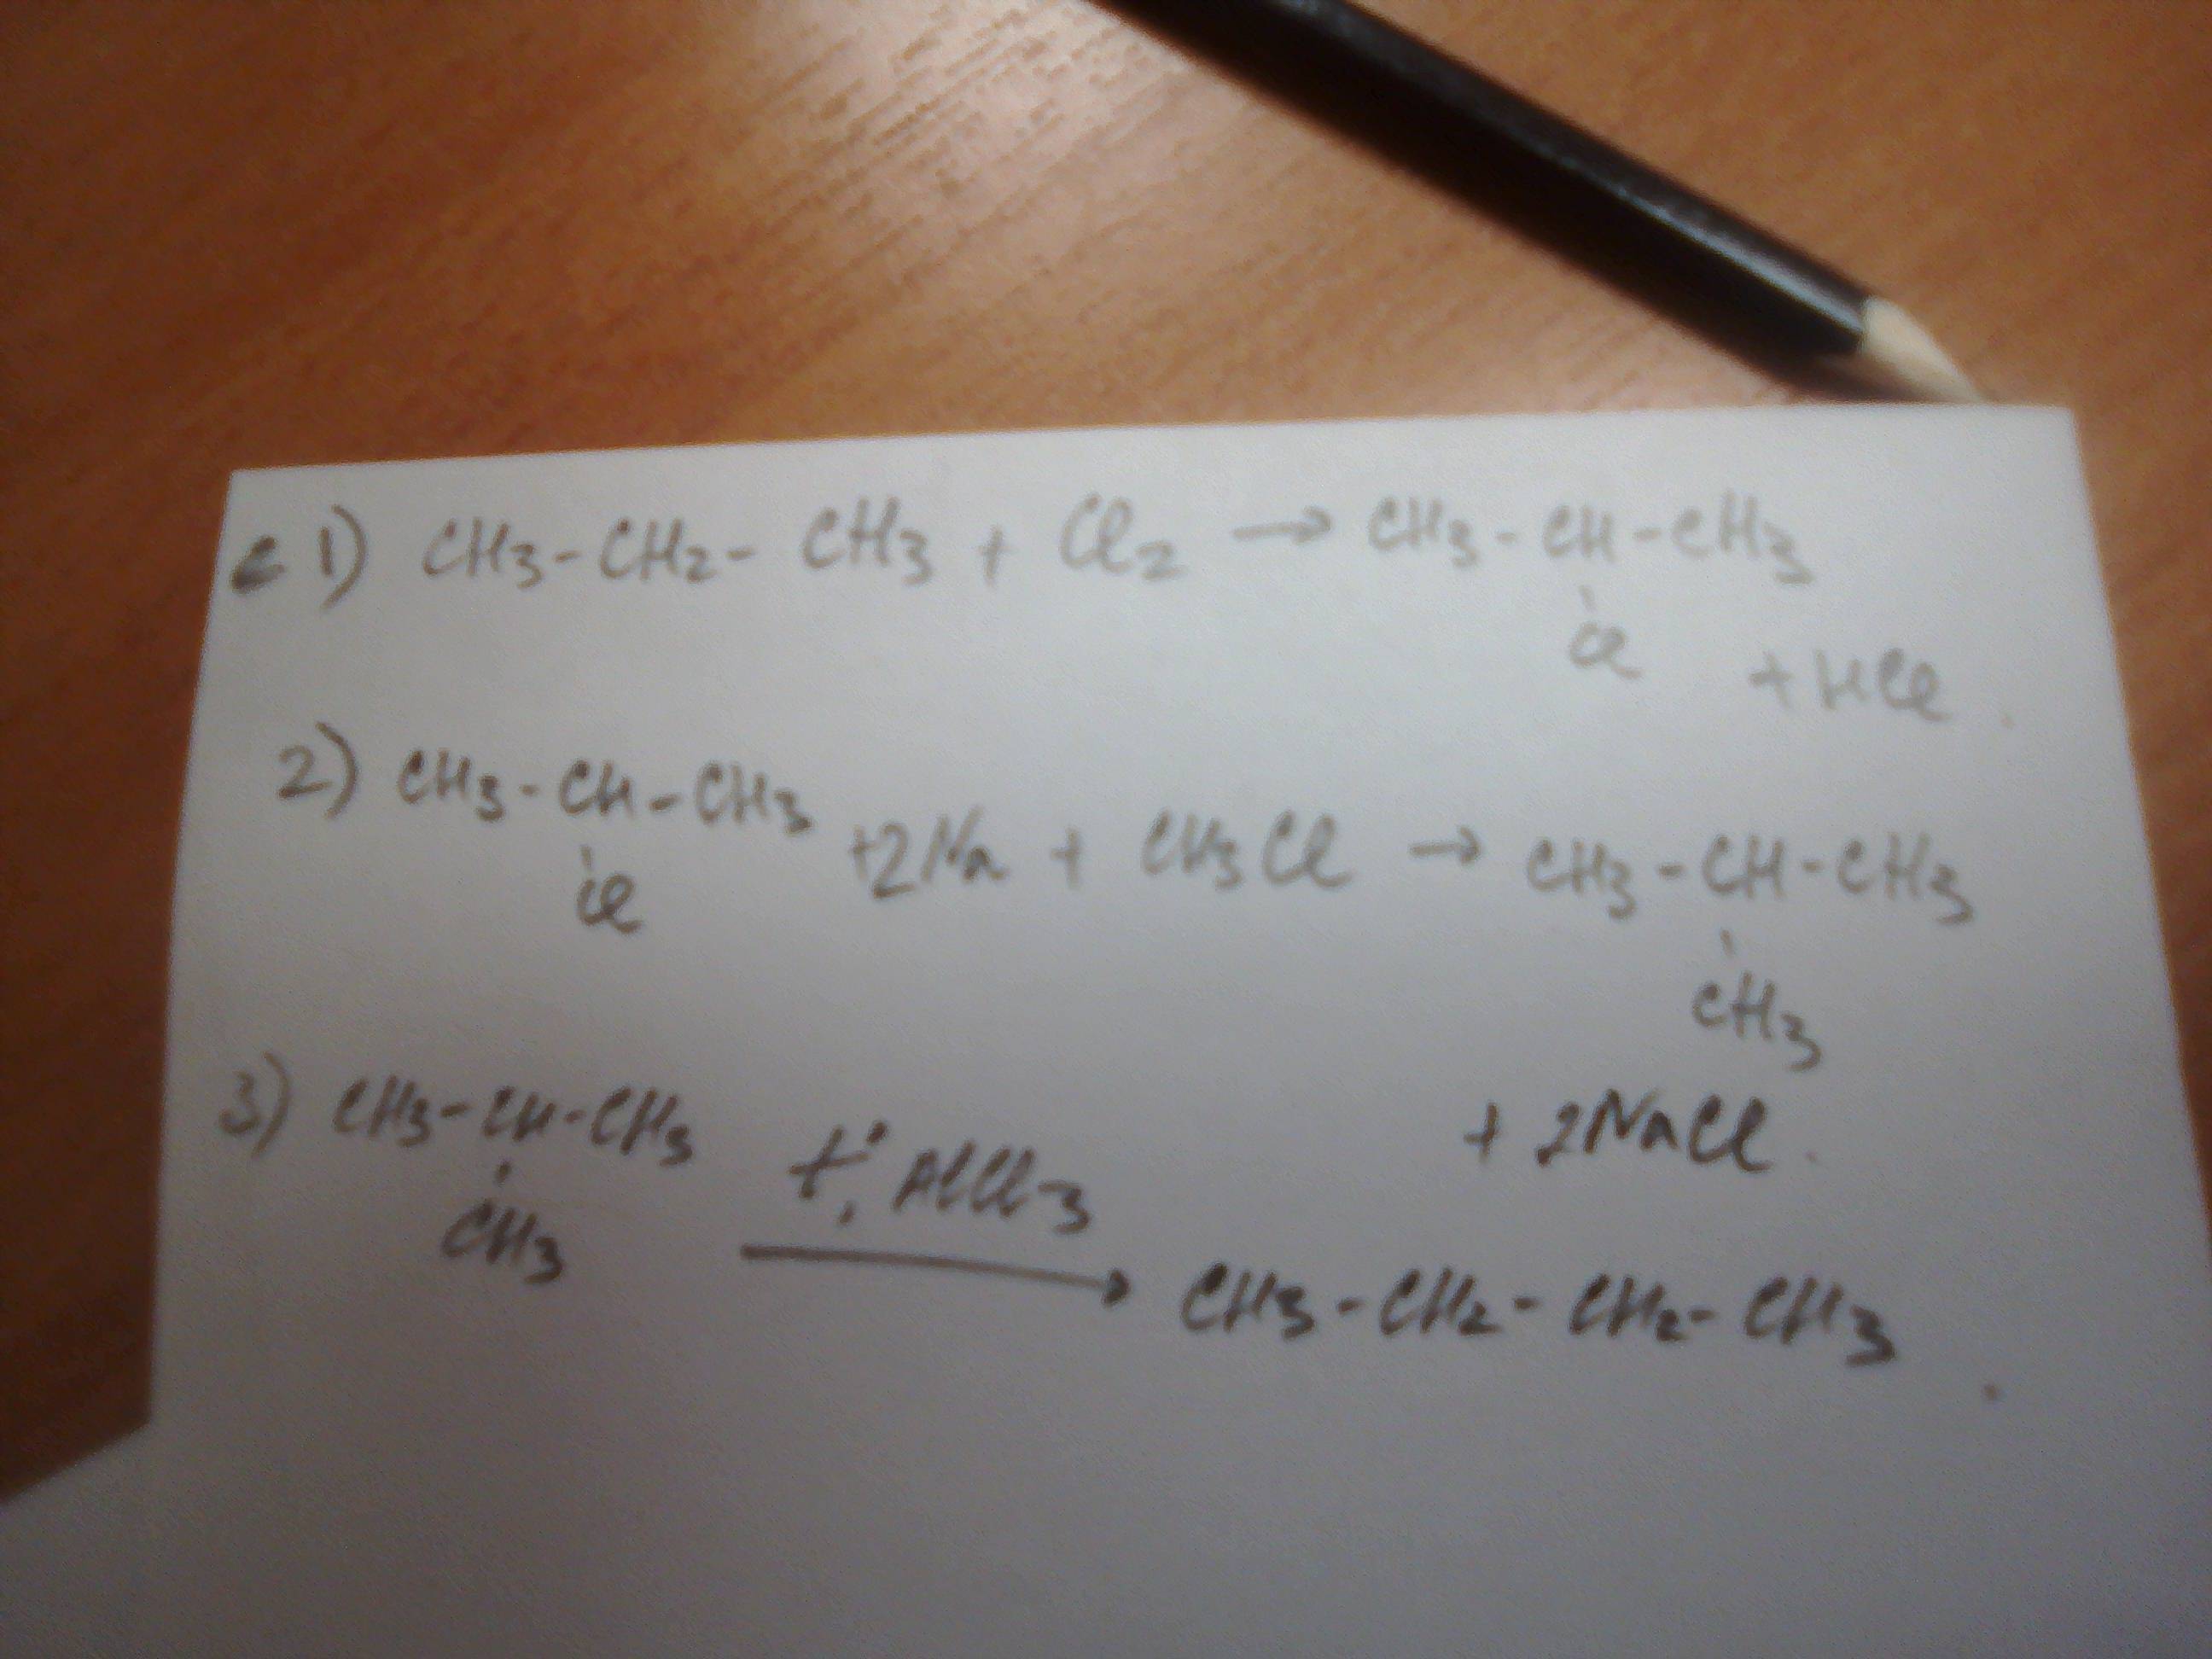 с 1) CH3-CH2-CH3 + Cl2 → CH3-CH-CH3
Cl + HCl.
2) CH3-CH-CH3 +2Na + CH3Cl → CH3-CH-CH3
Cl
CH3
+ 2NaCl.
3) CH3-CH-CH3
CH3
t°, AlCl3
→ CH3-CH2-CH2-CH3.